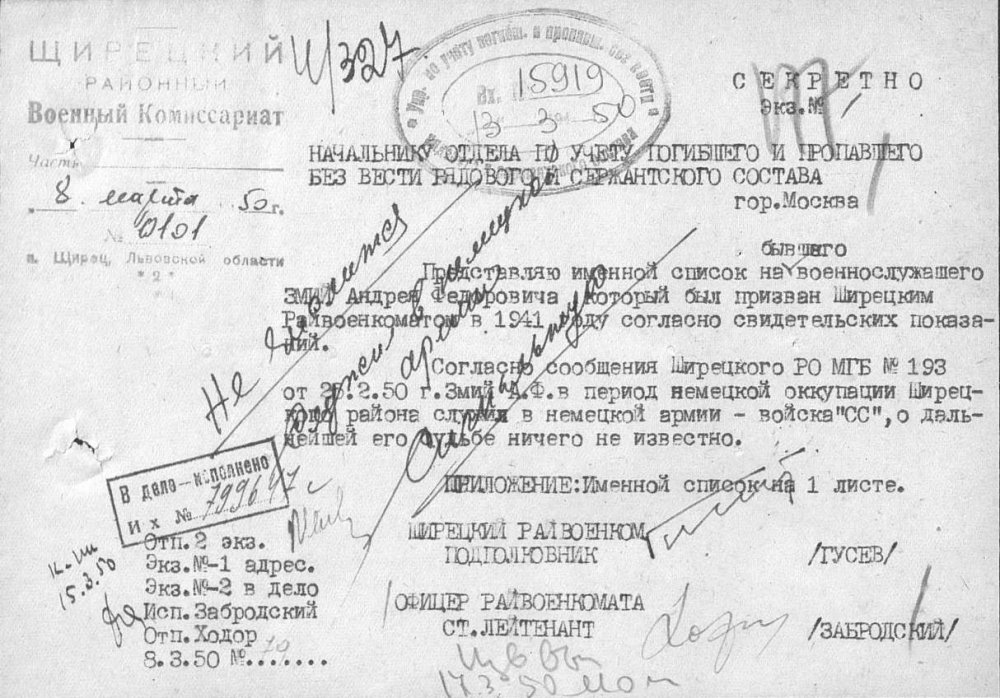 ЩИРЕЦКИЙ
РАЙОННЫЙ
Военный Комиссариат
Часть
"8" марта 50 г.
№ 0101
п. Щирец, Львовской области
* 2 *
4/327
Упр. по учету погибш. и пропавш. без вести
Вх. 15919
13 3 50
СЕКРЕТНО
Экз.№ 1
НАЧАЛЬНИКУ ОТДЕЛА ПО УЧЕТУ ПОГИБШЕГО И ПРОПАВШЕГО
БЕЗ ВЕСТИ РЯДОВОГО И СЕРЖАНТСКОГО СОСТАВА
гор.Москва
бывшего
Представляю именной список на военнослужашего
ЗМИЙ Андрея Федоровича который был призван Ширецким
Райвоенкоматом в 1941 году согласно свидетельских показа-
ний.
Согласно сообщения Ширецкого РО МГБ № 193
от 2.50 г.Змий А.Ф.в период немецкой оккупации Ширец-
кого района служил в немецкой армии - войска"СС",о даль-
нейшей его судьбе ничего не известно.
Не
служил в немецкой
армии
ПРИЛОЖЕНИЕ:Именной список на 1 листе.
В дело—исполнено
Их № 79964
ШИРЕЦКИЙ РАЙВОЕНКОМ
ПОДПОЛКОВНИК /ГУСЕВ/
Отп.2 экз.
Экз.№-1 адрес.
Экз.№-2 в дело
Исп.Забродский
Отп.Ходор
8.3.50 №.......
15.3.50
/ОФИЦЕР РАЙВОЕНКОМАТА
СТ.ЛЕЙТЕНАНТ /ЗАБРОДСКИЙ/
17.3.50